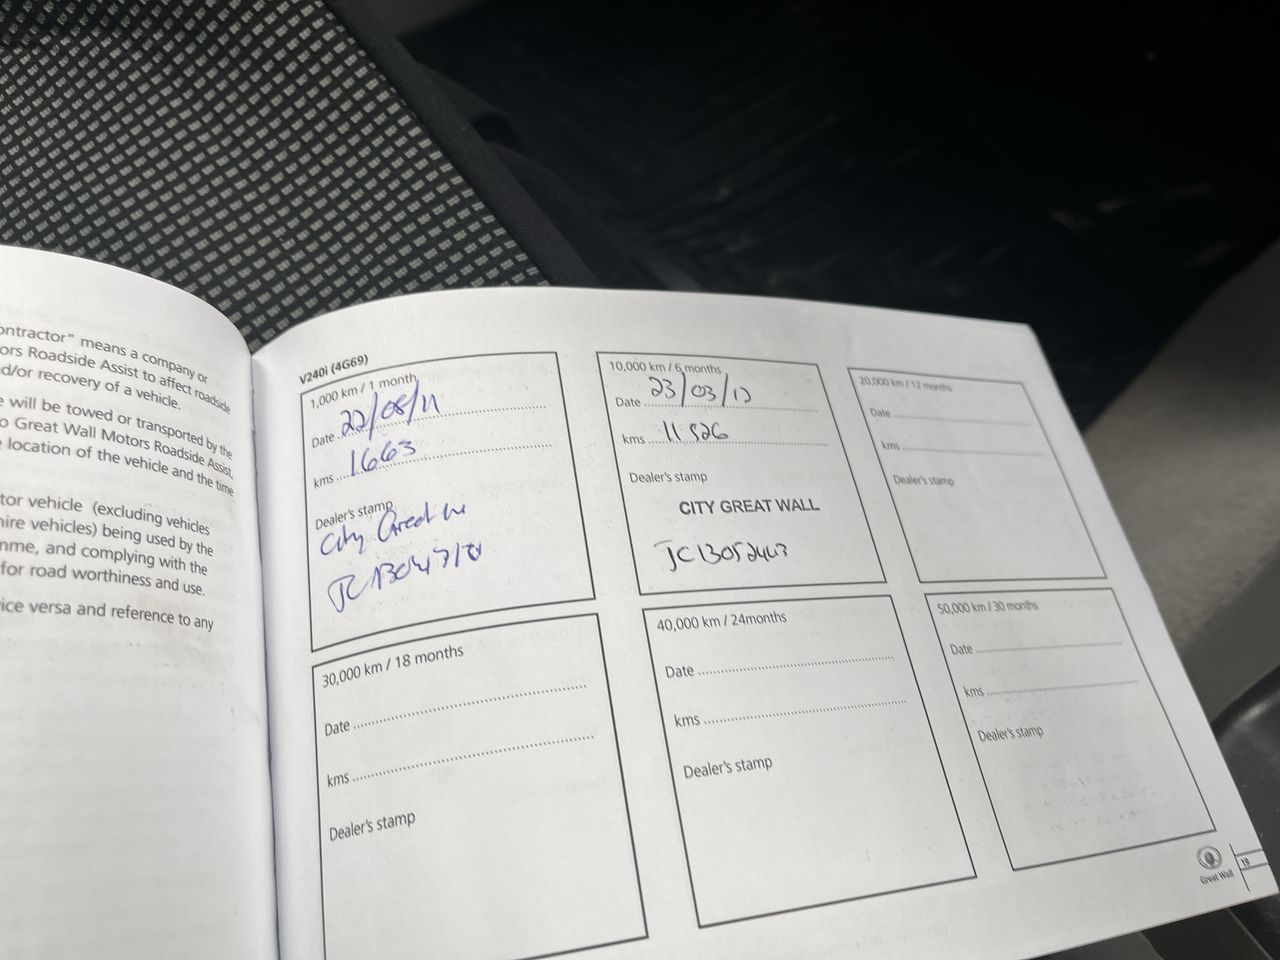 ontractor" means a company or
ors Roadside Assist to affect roadside
d/or recovery of a vehicle.
e will be towed or transported by the
o Great Wall Motors Roadside Assist,
e location of the vehicle and the time
tor vehicle (excluding vehicles
ire vehicles) being used by the
nme, and complying with the
for road worthiness and use.
ice versa and reference to any
V240i (4G69)
1,000 km / 1 month
Date 22/08/11
kms 1663
Dealer's stamp
City Great W
10,000 km / 6 months
Date 23/03/12
kms 11526
Dealer's stamp
CITY GREAT WALL
JC13052443
20,000 km / 12 months
Date
kms
Dealer's stamp
30,000 km / 18 months
Date
kms
Dealer's stamp
40,000 km / 24months
Date
kms
Dealer's stamp
50,000 km / 30 months
Date
kms
Dealer's stamp
Great Wall
19